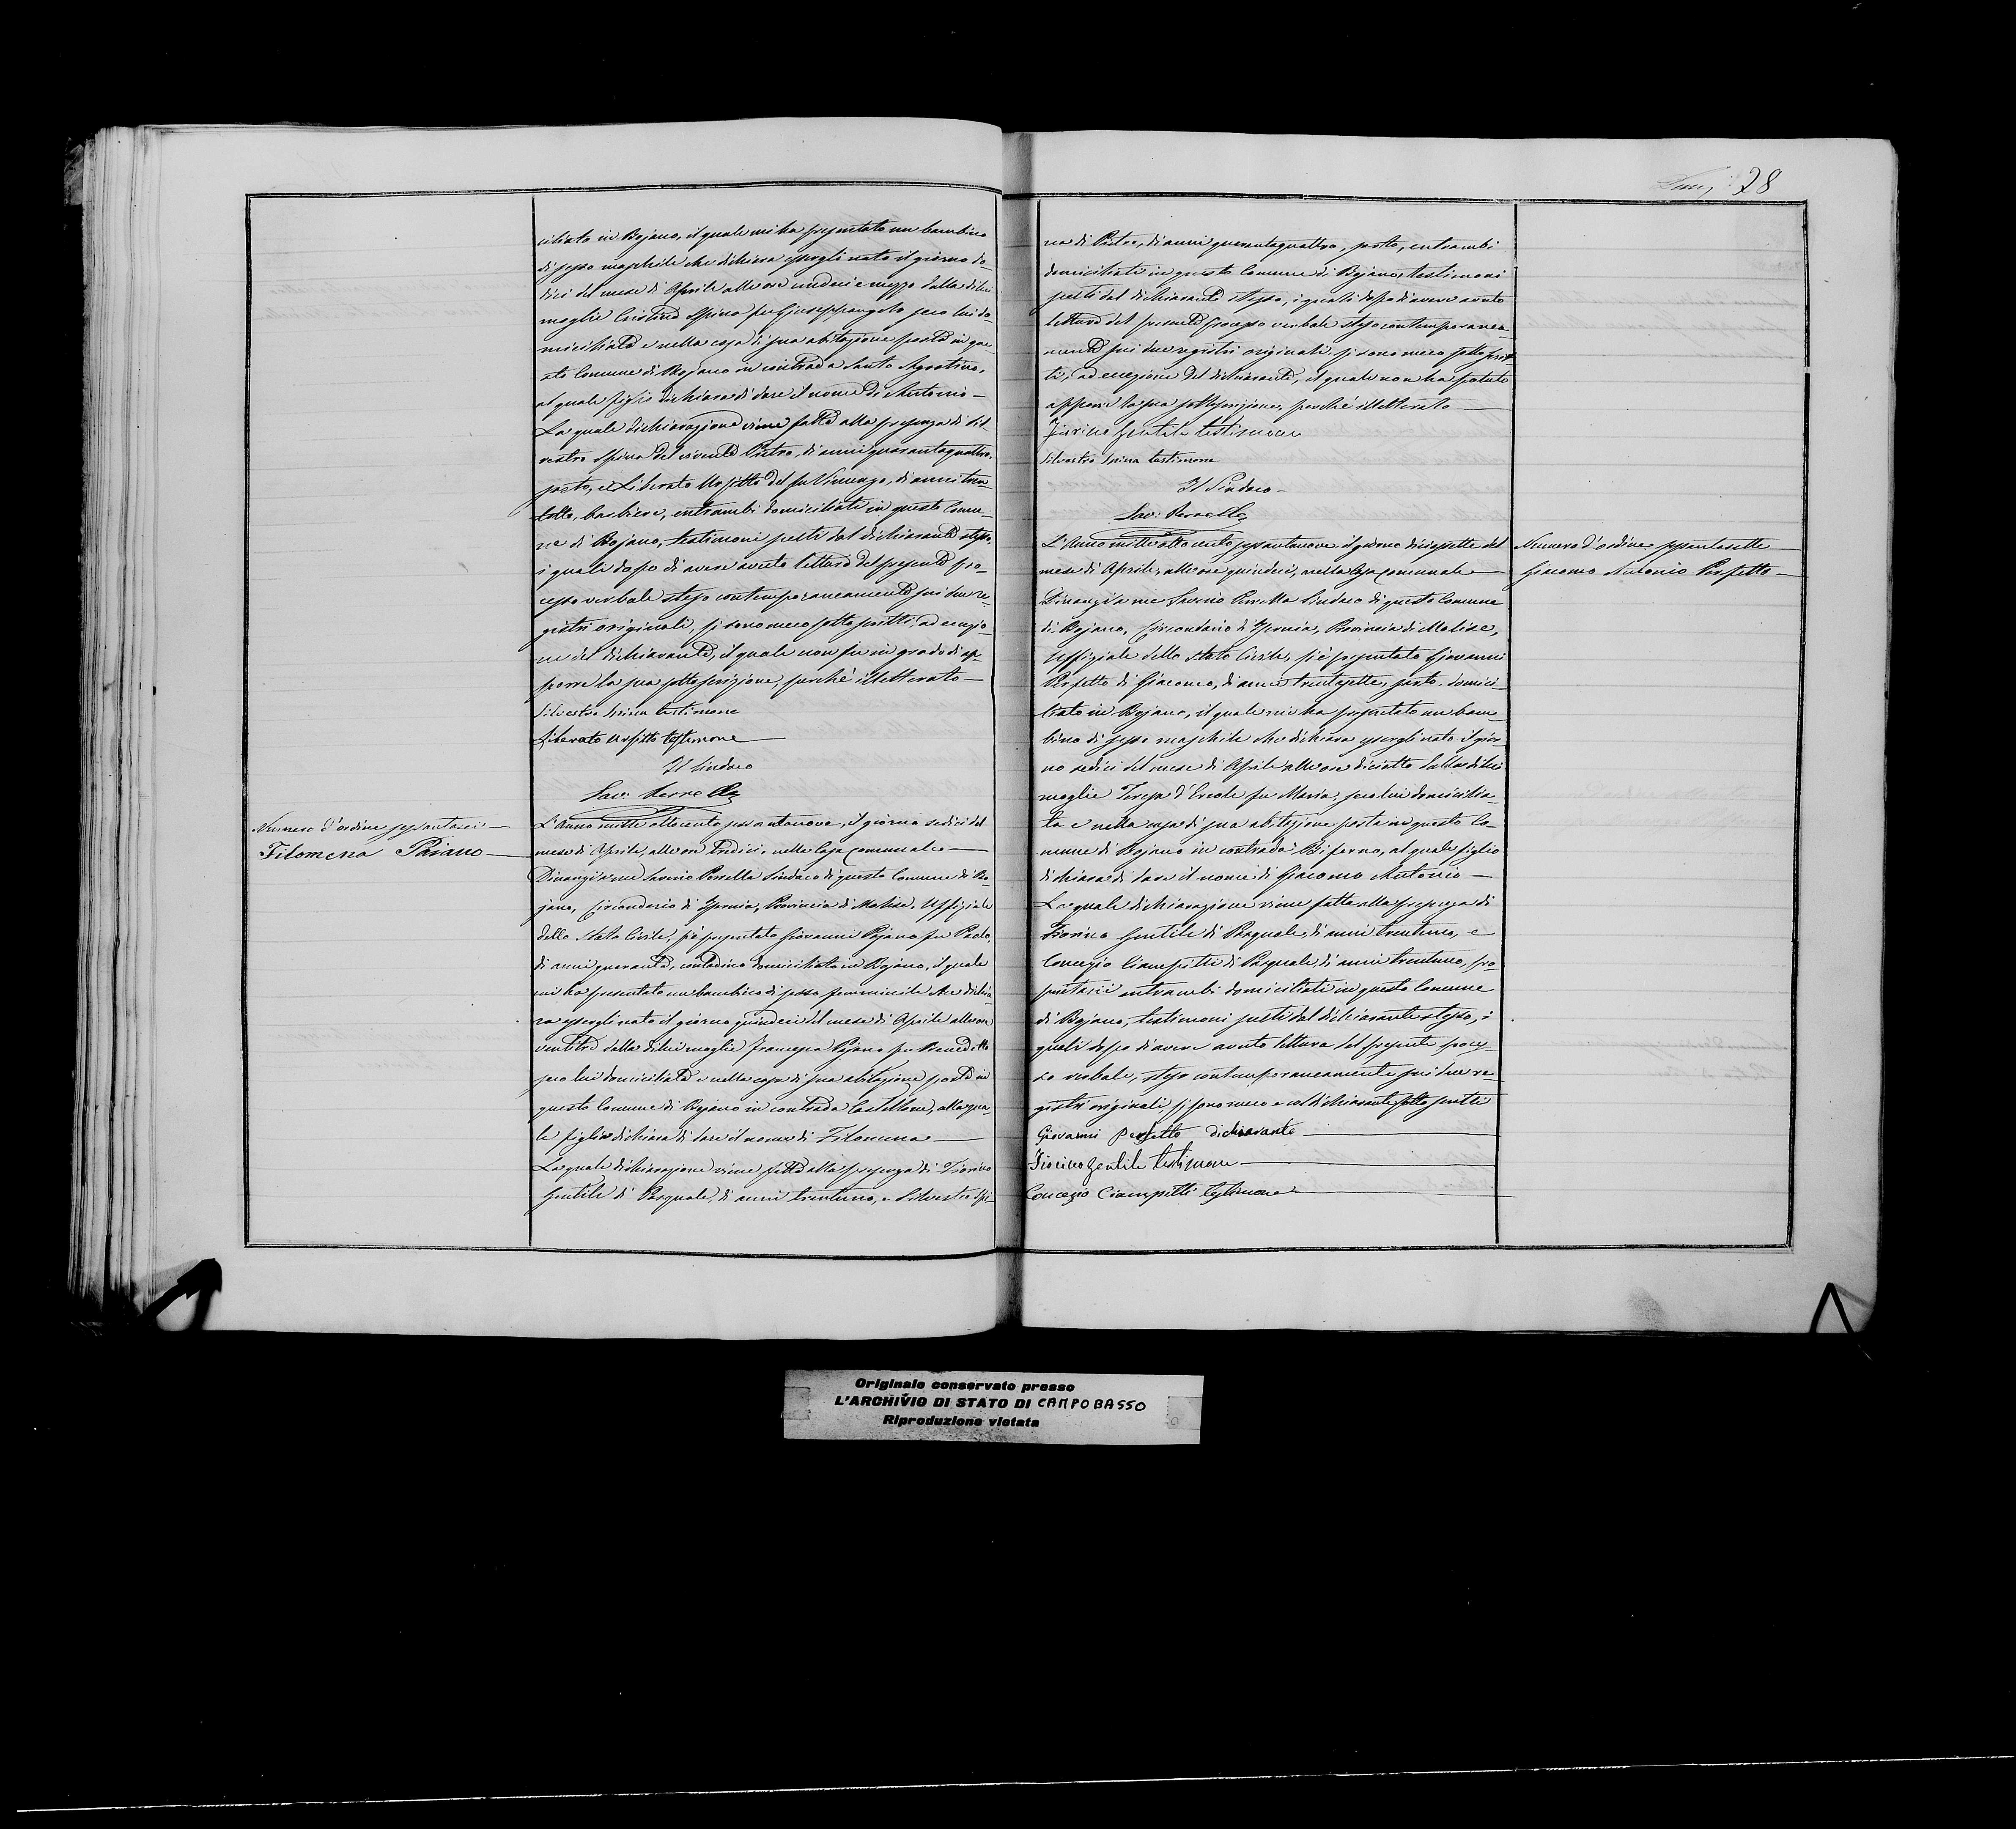 28
ciliato in Bojano, il quale mi ha presentato un bambino
di sesso maschile che dichiara essergli nato il giorno do-
dici del mese di Aprile alle ore undici e mezzo dalla di lui
moglie Cristina Spina fu Giuseppangelo seco lui do-
miciliata e nella casa di sua abitazione posta in que-
sto Comune di Bojano in contrada Santo Agostino,
al quale figlio dichiara di dare il nome di Antonio
La quale dichiarazione viene fatta alla presenza di Sil-
vestro Spina del vivente Pietro, di anni quarantaquattro,
sarto, e Liberato Urssitto del fu Vincenzo, di anni tren-
totto, barbiere, entrambi domiciliati in questo Comu-
ne di Bojano, testimoni scelti dal dichiarante stesso,
i quali dopo di avere avuto lettura del presente pro-
cesso verbale steso contemporaneamente sui due re-
gistri originali, si sono meco sottoscritti, ad eccezio-
ne del dichiarante, il quale non fu in grado di ap-
porre la sua sottoscrizione, perché illetterato
Silvestro Spina testimone
Liberato Urssitto testimone
Il Sindaco
Sav: Perrella
Numero d'ordine sessantasei
Filomena Paiano
L'Anno mille ottocento sessantanove, il giorno sedici del
mese di Aprile, alle ore tredici, nella Casa comunale
Dinanzi a me Saverio Perrella Sindaco di questo Comune di Bo-
jano, Circondario di Isernia, Provincia di Molise, Uffiziale
dello Stato Civile, si è presentato Giovanni Pajano fu Paolo,
di anni quaranta, contadino domiciliato in Bojano, il quale
mi ha presentato un bambino di sesso femminile che dichia-
ra essergli nato il giorno quindici del mese di Aprile alle ore
ventitre dalla di lui moglie Francesca Pajano fu Benedetto
seco lui domiciliata e nella casa di sua abitazione posta in
questo Comune di Bojano in contrada Castellone, alla qua-
le figlia dichiara di dare il nome di Filomena
La quale dichiarazione viene fatta alla presenza di Fiorino
Gentile di Pasquale, di anni trentuno, e Silvestro Spi-
na di Pietro, di anni quarantaquattro, sarto, entrambi
domiciliati in questo Comune di Bojano, testimoni
scelti dal dichiarante stesso, i quali dopo di avere avuto
lettura del presente processo verbale steso contemporanea-
mente sui due registri originali si sono meco sottoscrit-
ti, ad eccezione del dichiarante, il quale non ha potuto
apporre la sua sottoscrizione, perché illetterato
Fiorino Gentile testimone
Silvestro Spina testimone
Il Sindaco
Sav: Perrella
L'Anno mille ottocento sessantanove il giorno diciassette del
mese di Aprile, alle ore quindici, nella Casa comunale
Dinanzi a me Saverio Perrella Sindaco di questo Comune
di Bojano, Circondario di Isernia, Provincia di Molise,
Uffiziale dello Stato Civile, si è presentato Giovanni
Perfetto di Giacomo, di anni trentasette, sarto, domici-
liato in Bojano, il quale mi ha presentato un bam-
bino di sesso maschile che dichiara essergli nato il gior-
no sedici del mese di Aprile alle ore diciotto dalla di lui
moglie Teresa d'Ercole fu Maria, seco lui domicilia-
ta e nella casa di sua abitazione posta in questo Co-
mune di Bojano in contrada Biferno, al quale figlio
dichiara di dare il nome di Giacomo Antonio
La quale dichiarazione viene fatta alla presenza di
Fiorino Gentile di Pasquale, di anni trentuno, e
Concezio Ciampitti di Pasquale, di anni trentuno, pro-
prietarii entrambi domiciliati in questo Comune
di Bojano, testimoni scelti dal dichiarante stesso, i
quali dopo di avere avuto lettura del presente proces-
so verbale, steso contemporaneamente sui due re-
gistri originali, si sono meco e col dichiarante sottoscritti
Giovanni Perfetto dichiarante
Fiorino Gentile testimone
Concezio Ciampitti testimone
Numero d'ordine sessantasette
Giacomo Antonio Perfetto
Originale conservato presso
L'ARCHIVIO DI STATO DI CAMPOBASSO
Riproduzione vietata